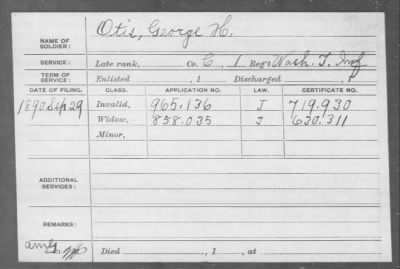 NAME OF SOLDIER: Otis, George H.
SERVICE: Late rank, Co. C, 1 Reg't Wash. T. Inf
TERM OF SERVICE: Enlisted , 1 Discharged , 1
DATE OF FILING. CLASS. APPLICATION NO. LAW. CERTIFICATE NO.
1890 Sep 29 Invalid, 965.136 J 719.930
Widow, 858.035 J 630.311
Minor,
ADDITIONAL SERVICES:
REMARKS:
Died , 1 , at